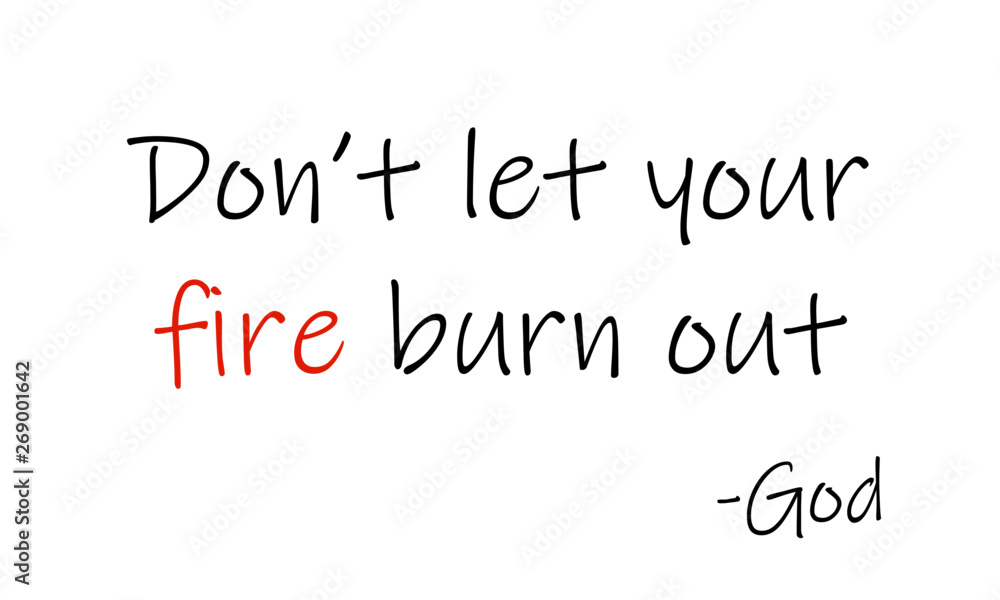 Don't let your
fire burn out
-God
Adobe Stock | #269001642